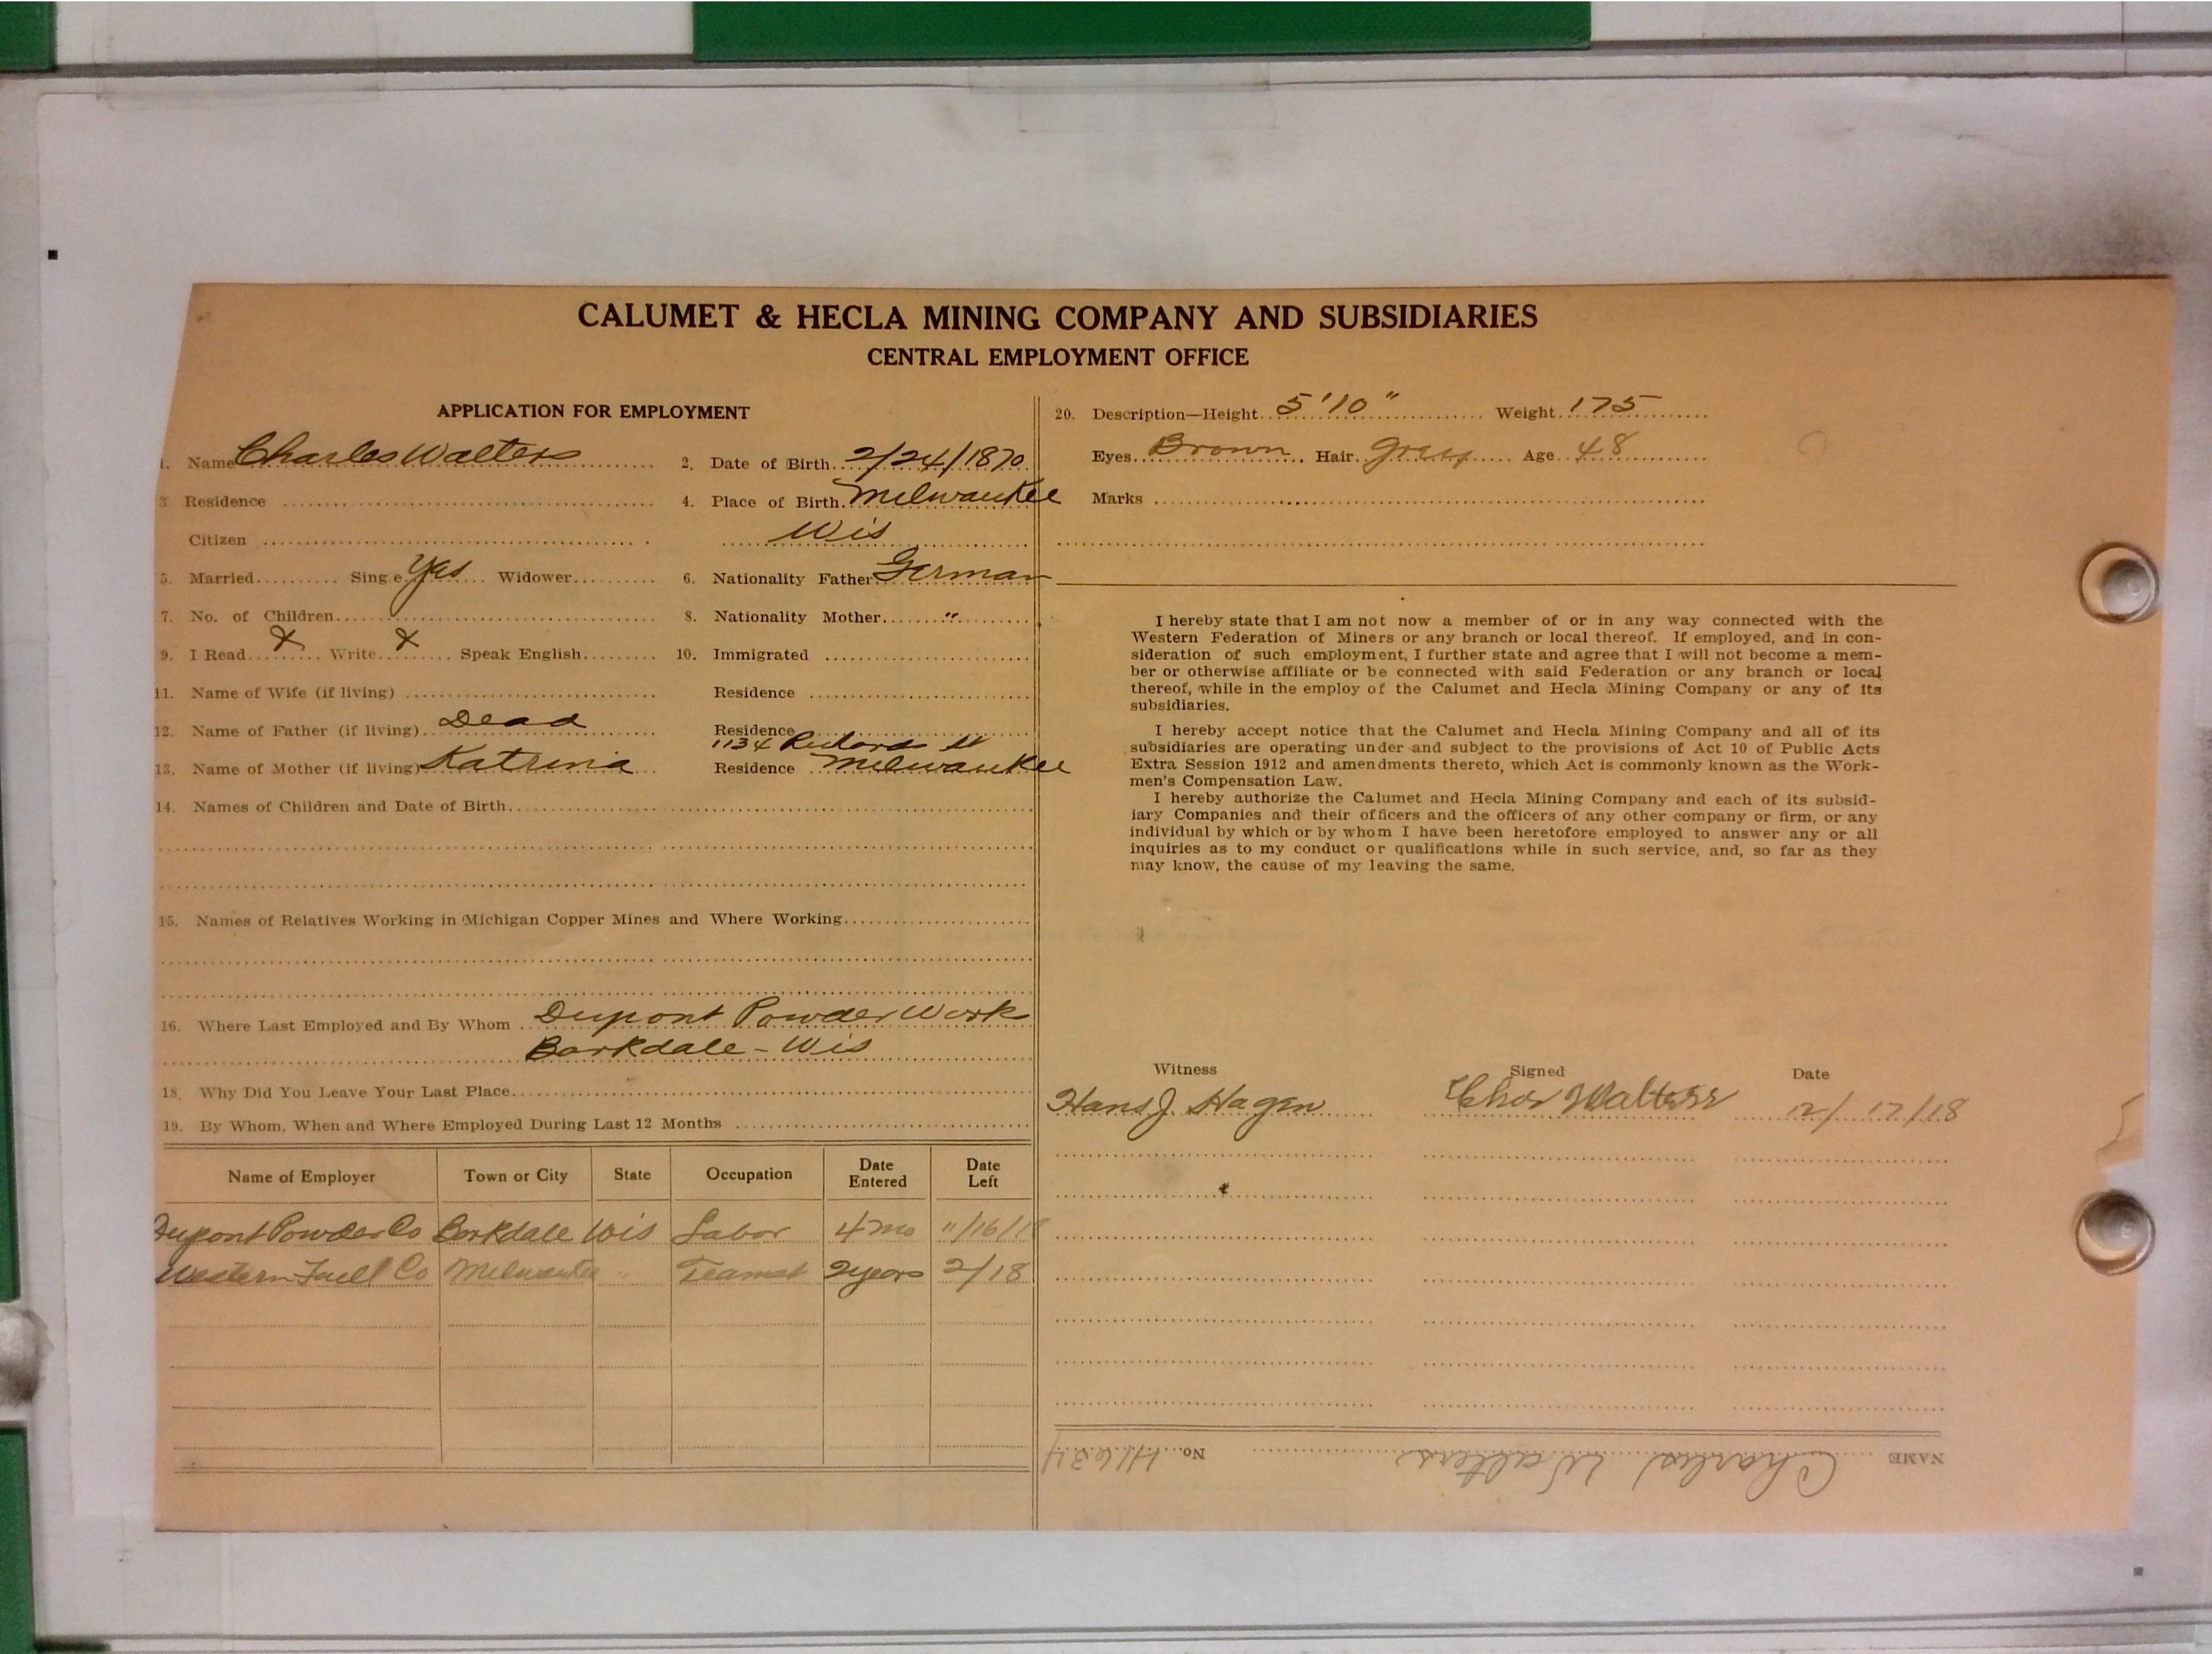 CALUMET & HECLA MINING COMPANY AND SUBSIDIARIES
CENTRAL EMPLOYMENT OFFICE
APPLICATION FOR EMPLOYMENT
1. Name Charles Walters 2. Date of Birth 2/24/1870
3 Residence 4. Place of Birth Milwaukee
Citizen Wis
5. Married Sing e Yes Widower 6. Nationality Father German
7. No. of Children 8. Nationality Mother "
9. I Read X Write X Speak English 10. Immigrated
11. Name of Wife (if living) Residence
12. Name of Father (if living) Dead Residence
1134 Richards St
13. Name of Mother (if living) Katrina Residence Milwaukee
14. Names of Children and Date of Birth
15. Names of Relatives Working in Michigan Copper Mines and Where Working
16. Where Last Employed and By Whom Dupont Powder Work
Barkdale - Wis
18. Why Did You Leave Your Last Place
19. By Whom, When and Where Employed During Last 12 Months
Name of Employer Town or City State Occupation Date Entered Date Left
Dupont Powder Co Barkdale Wis Labor 4 mo 11/16/18
Western Fuell Co Milwaukee " Teamst 2 years 2/18
20. Description—Height 5'10" Weight 175
Eyes Brown Hair Grey Age 48
Marks
I hereby state that I am not now a member of or in any way connected with the
Western Federation of Miners or any branch or local thereof. If employed, and in con-
sideration of such employment, I further state and agree that I will not become a mem-
ber or otherwise affiliate or be connected with said Federation or any branch or local
thereof, while in the employ of the Calumet and Hecla Mining Company or any of its
subsidiaries.
I hereby accept notice that the Calumet and Hecla Mining Company and all of its
subsidiaries are operating under and subject to the provisions of Act 10 of Public Acts
Extra Session 1912 and amendments thereto, which Act is commonly known as the Work-
men's Compensation Law.
I hereby authorize the Calumet and Hecla Mining Company and each of its subsid-
iary Companies and their officers and the officers of any other company or firm, or any
individual by which or by whom I have been heretofore employed to answer any or all
inquiries as to my conduct or qualifications while in such service, and, so far as they
may know, the cause of my leaving the same.
Witness Signed Date
Hans J. Hagen Chas Walters 12/17/18
NAME Charles Walters No. H1634